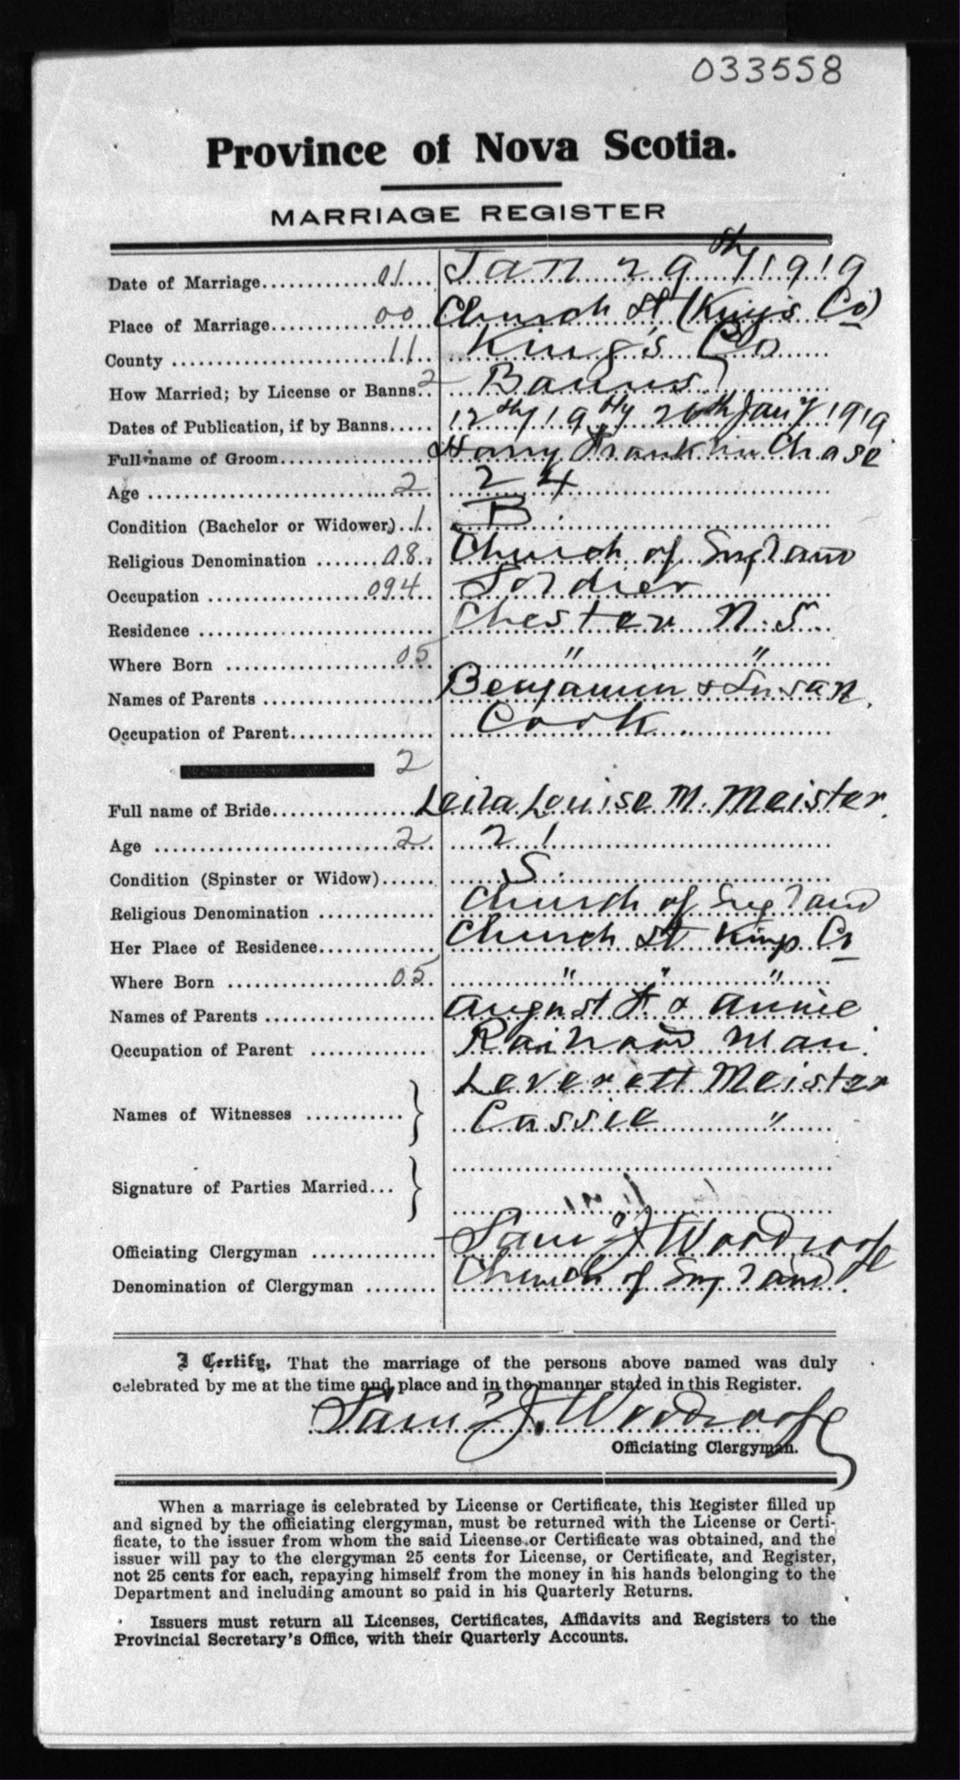 033558
Province of Nova Scotia.
MARRIAGE REGISTER
Date of Marriage 01 Jan 29th/1919
Place of Marriage 00 Church St (King's Co)
County 11 King's Co
How Married; by License or Banns 2 Banns
Dates of Publication, if by Banns 12th/19th/26th Jany 1919
Full name of Groom Harry Franklin Chase
Age 2 24
Condition (Bachelor or Widower) 1 B.
Religious Denomination 08 Church of England
Occupation 094 Soldier
Residence Chester N.S.
Where Born 05 " "
Names of Parents Benjamin & Susan
Occupation of Parent Cook
2
Full name of Bride Leila Louise M. Meister
Age 2 21
Condition (Spinster or Widow) S.
Religious Denomination Church of England
Her Place of Residence Church St Kings Co
Where Born 05 " " "
Names of Parents August F & Annie
Occupation of Parent Railroad Man.
Leverett Meister
Names of Witnesses Cassie "
Signature of Parties Married
Officiating Clergyman Saml J Woodroofe
Denomination of Clergyman Church of England.
I Certify, That the marriage of the persons above named was duly
celebrated by me at the time and place and in the manner stated in this Register.
Saml J. Woodroofe
Officiating Clergyman.
When a marriage is celebrated by License or Certificate, this Register filled up
and signed by the officiating clergyman, must be returned with the License or Certi-
ficate, to the issuer from whom the said License or Certificate was obtained, and the
issuer will pay to the clergyman 25 cents for License, or Certificate, and Register,
not 25 cents for each, repaying himself from the money in his hands belonging to the
Department and including amount so paid in his Quarterly Returns.
Issuers must return all Licenses, Certificates, Affidavits and Registers to the
Provincial Secretary's Office, with their Quarterly Accounts.